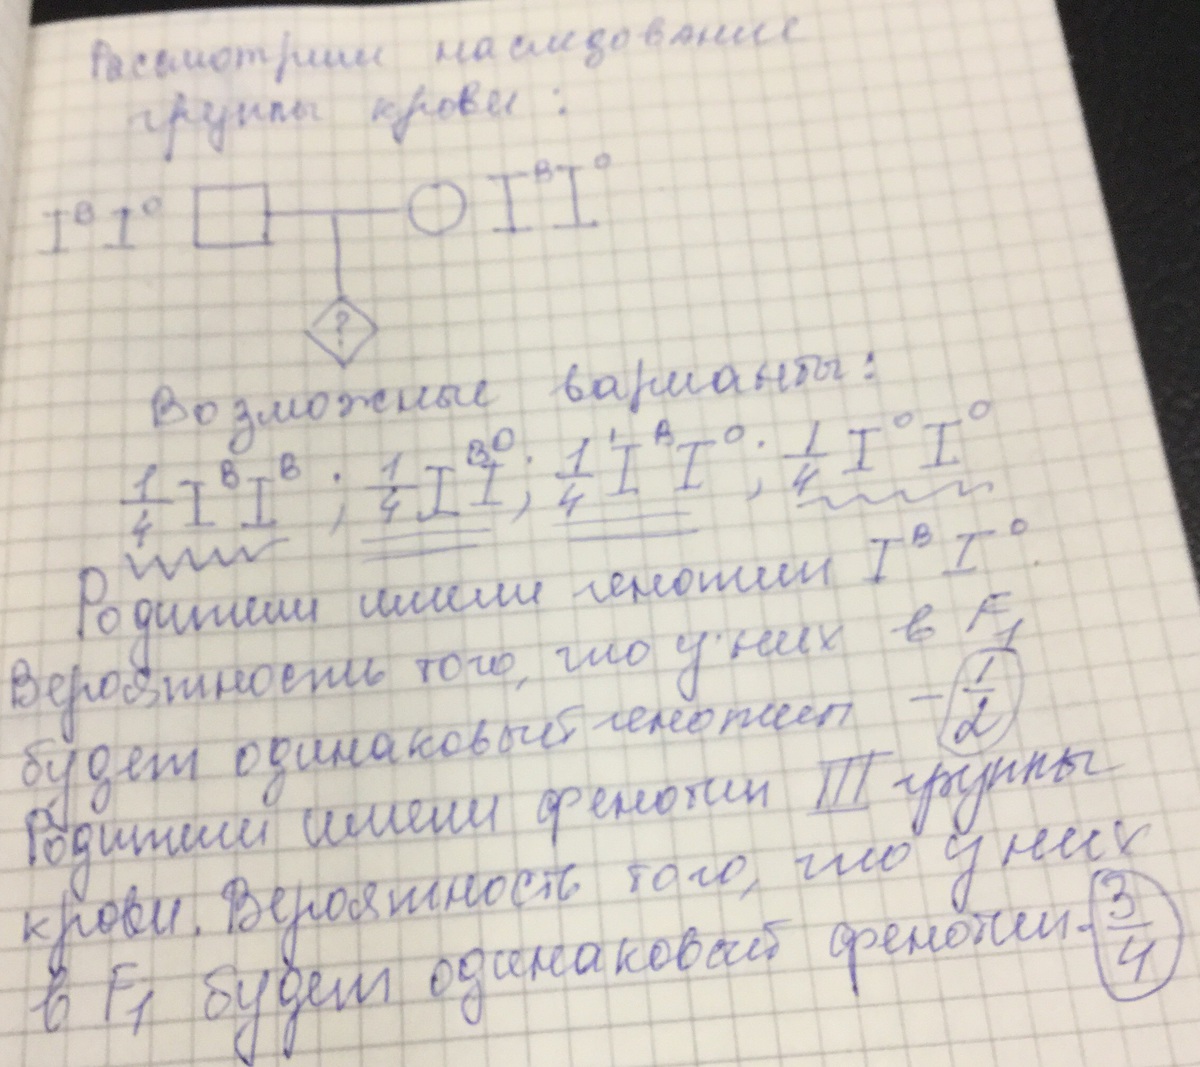 Рассмотрим наследование
группы крови:
I^B I^O I^B I^O
?
Возможные варианты:
1/4 I^B I^B ; 1/4 I^B I^O ; 1/4 I^B I^O ; 1/4 I^O I^O
Родители имели генотип I^B I^O.
Вероятность того, что у них в F₁
будет одинаковый генотип - 1/2
Родители имели фенотип III группы
крови. Вероятность того, что у них
в F₁ будет одинаковый фенотип - 3/4